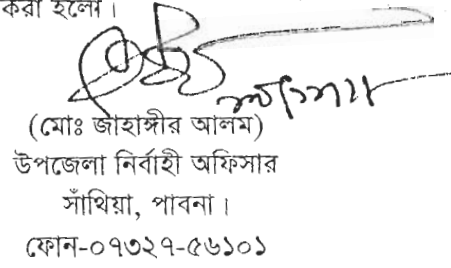 করা হলো।
(মোঃ জাহাঙ্গীর আলম)
উপজেলা নির্বাহী অফিসার
সাঁথিয়া, পাবনা।
ফোন-০৭৩২৭-৫৬১০১